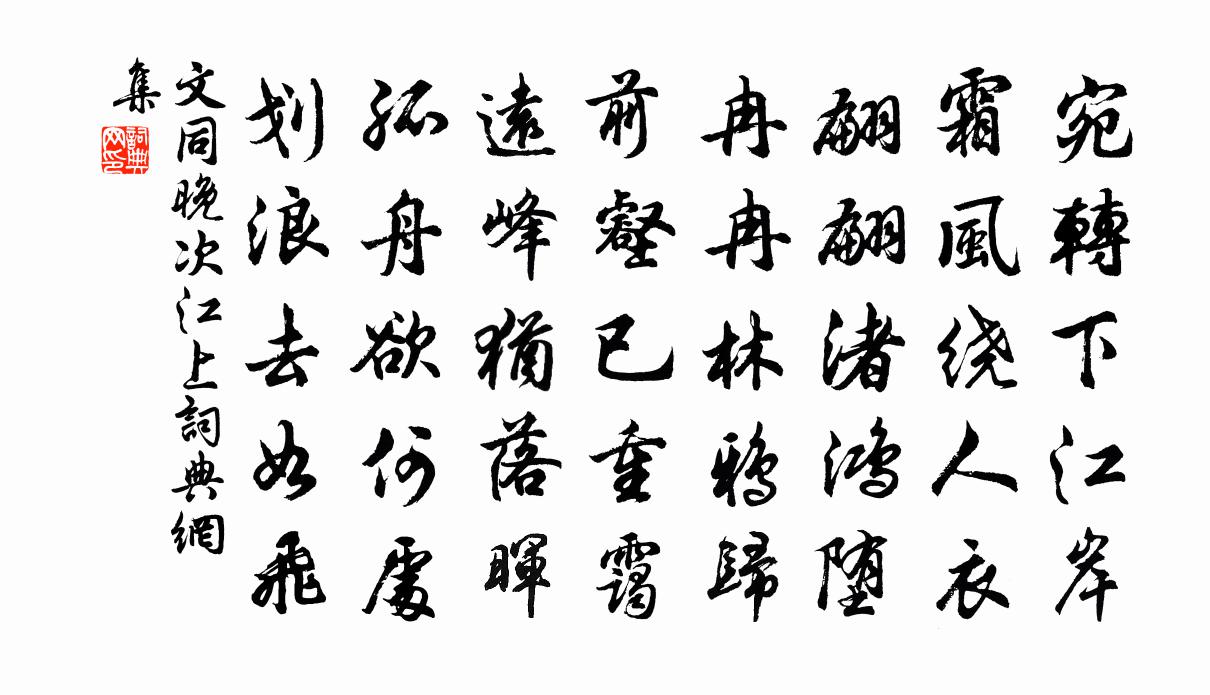 宛轉下江岸
霜風绕人衣
翩翩渚鸿堕
冉冉林鸦歸
前壑已重靄
遠峰猶落暉
孤舟欲何處
划浪去如飛
文同晚次江上詞典網
集
詞典
网印